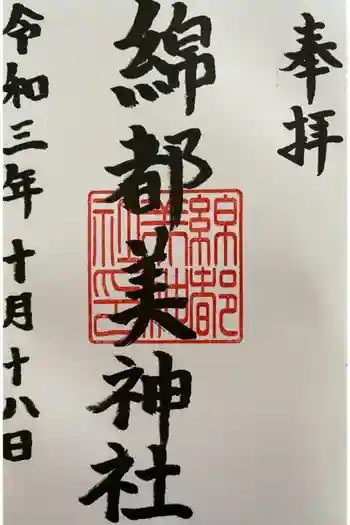 奉拝
綿都美神社
綿都美神社印
令和三年十月十八日